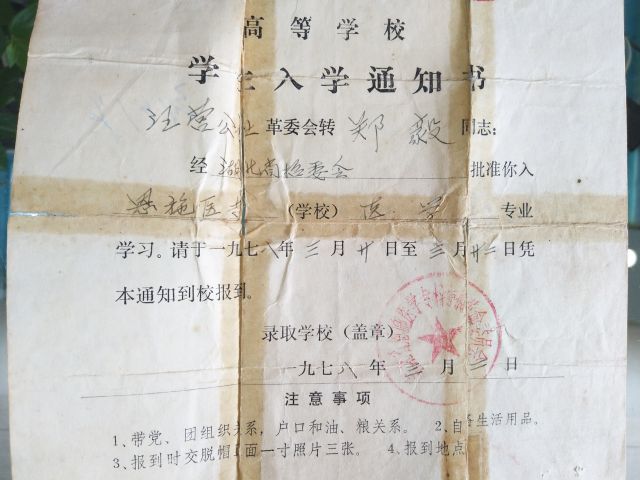 高等学校
学生入学通知书
汪营公社革委会转 郑毅 同志：
经 湖北省招委会 批准你入
恩施医专（学校）医学 专业
学习。请于一九七八年 三月廿日至三月廿二日凭
本通知到校报到。
录取学校（盖章）
一九七八年三月二日
注意事项
1、带党、团组织关系，户口和油、粮关系。 2、自备生活用品。
3、报到时交脱帽正面一寸照片三张。 4、报到地点